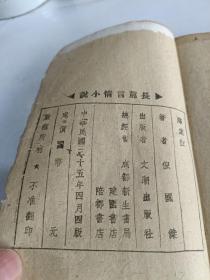 長篇言情小說
著者 倪國傑
出版者 文潮出版社
總經售 成都新生書局
建國書店
陪都書店
中華民國三十五年四月四版
定價國幣 元
版權所有 不准翻印